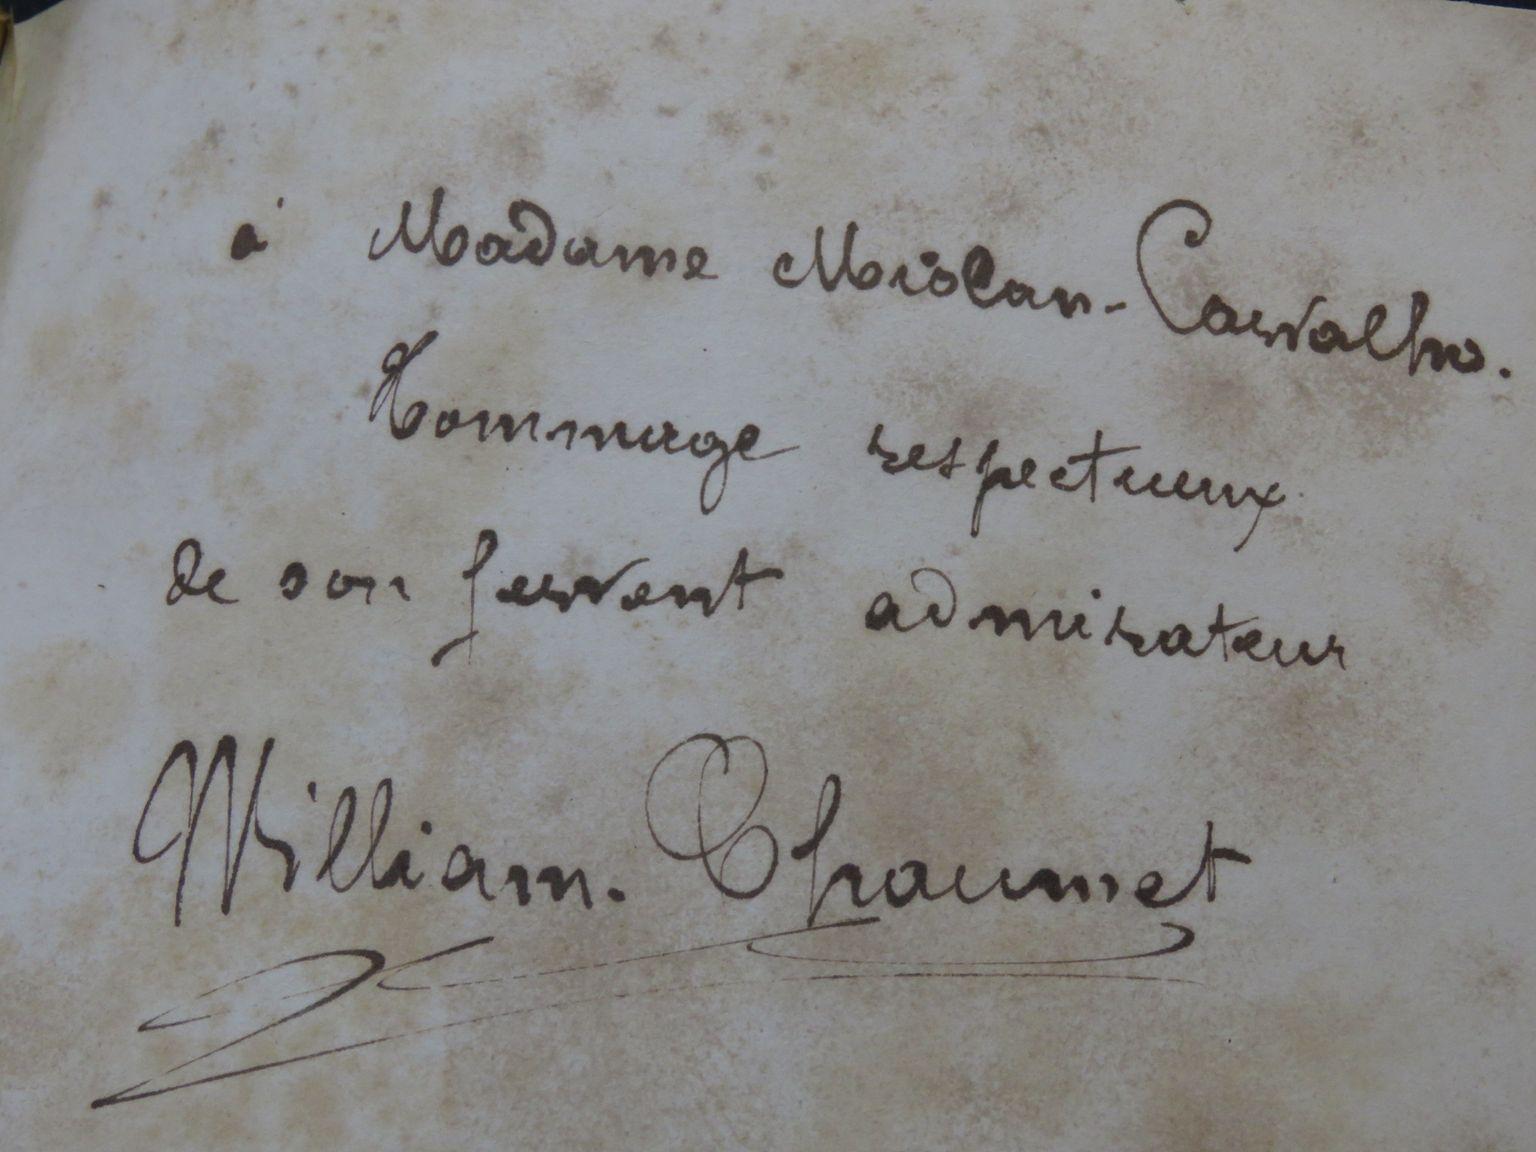 à Madame Miolan-Carvalho.
Hommage respectueux
de son fervent admirateur
William. Chaumet